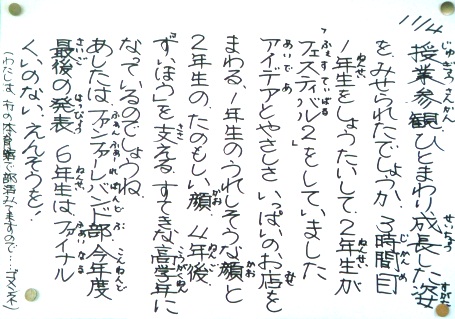 11/4
授業参観、ひとまわり成長した姿
を、みせられたでしょうか。3時間目
1年生をしょうたいして、2年生が
「フェスティバル2」をしていました
アイデアとやさしさ いっぱいのお店を
まわる、1年生のうれしそうな顔と
2年生の、たのもしい顔。4年後、
「ずいほう」を支える、すてきな高学年に
なっているのでしょうね。
あしたは、ファンファーレバンド部今年度
最後の発表 6年生はファイナル
くいのない、えんそうを！